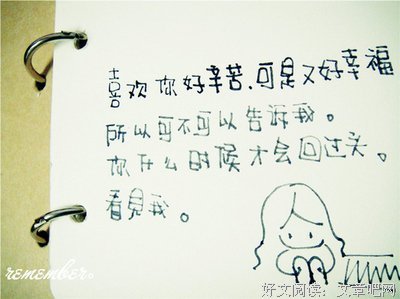 喜欢你好辛苦，可是又好幸福
所以可不可以告诉我。
你什么时候才会回过头。
看見我。
remember。
好文阅读：文章吧网